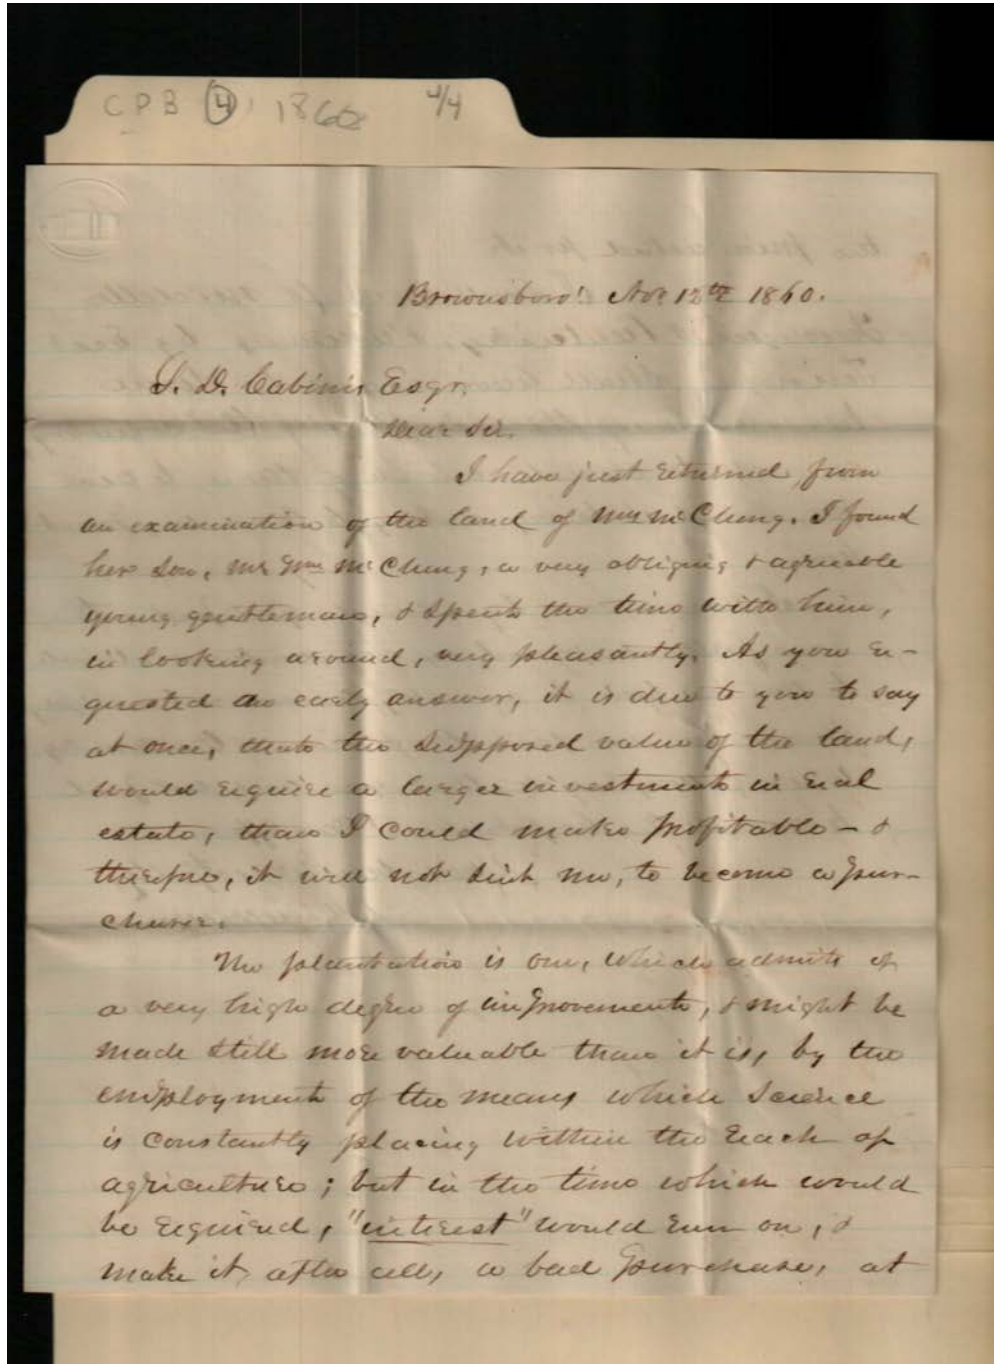 CPB 4 1860 4/4
Brownsboro' Nov 12th 1860.
S. D. Cabiniss Esqr.
Dear Sir.
I have just returned from
an examination of the land of Mrs McClung. I found
her son, Mr Wm McClung, a very obliging & agreeable
young gentleman, & spent the time with him,
in looking around, very pleasantly. As you re-
quested an early answer, it is due to you to say
at once, that the supposed value of the land,
would require a larger investment in real
estate, than I could make profitable - &
therefore, it will not suit me, to become a pur-
chaser.
The plantation is one, which admits of
a very high degree of improvement, & might be
made still more valuable than it is, by the
employment of the means which science
is constantly placing within the reach of
agriculture; but in the time which would
be required, "interest" would run on, &
make it, after all, a bad purchase, at